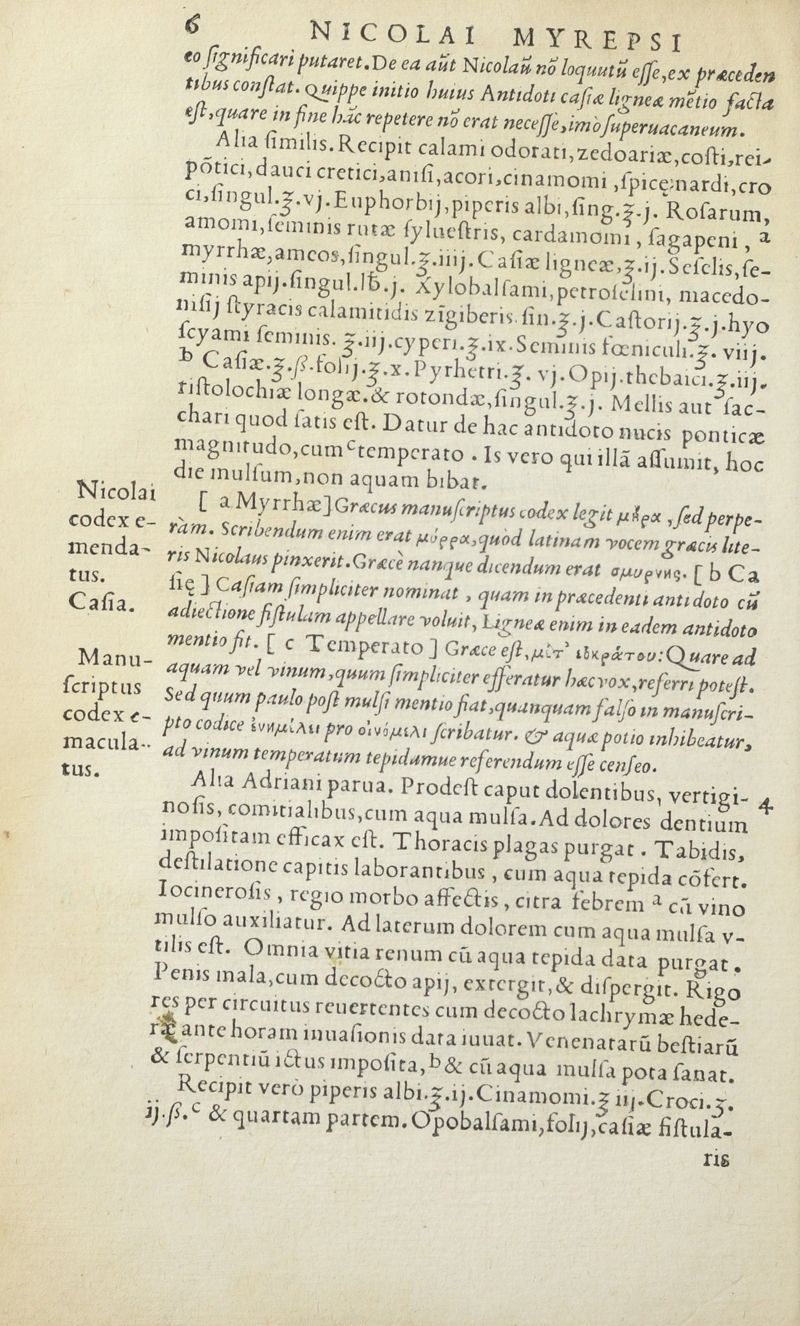 6 NICOLAI MYREPSI
eo ſignificari putaret. De ea aūt Nicolaū nō loquutū eſſe, ex præceden
tibus conſtat. Quippe initio huius Antidoti caſiæ ligneæ mētio facta
eſt, quare in fine hāc repetere nō erat neceſſe, imò ſuperuacaneum.
Alia ſimilis. Recipit calami odorati, zedoariæ, coſti, rei-
potici, dauci cretici, aniſi, acori, cinamomi, ſpicę nardi, cro
ci, ſingul. ʒ. vj. Euphorbij, piperis albi, ſing. ʒ. j. Roſarum,
amomi, ſeminis rutæ ſylueſtris, cardamomi, ſagapeni, a
myrrhæ, ameos, ſingul. ʒ. iiij. Caſiæ ligneæ, ʒ. ij. Seſelis, ſe-
minis apij. ſingul. ℔. j. Xylobalſami, petroſelini, macedo-
niſij ſtyracis calamitidis zīgiberis. ſin. ʒ. j. Caſtorij. ʒ. j. hyo
ſcyami ſeminis. ʒ. iij. cyperi. ʒ. ix. Seminis fœniculi. ʒ. viij.
b Caſiæ. ʒ. ß. folij. ʒ. x. Pyrhetri. ʒ. vj. Opij. thebaici. ʒ. iij.
riſtolochiæ longæ. & rotondæ, ſingul. ʒ. j. Mellis aut ſac-
chari quod ſatis eſt. Datur de hac antidoto nucis ponticæ
magnitudo, cum c temperato. Is vero qui illā aſſumit, hoc
die mulſum, non aquam bibat.
Nicolai
codex e-
menda-
tus.
Caſia.
Manu-
ſcriptus
codex e-
macula-
tus.
[ a Myrrhæ] Græcus manuſcriptus codex legit μύρα, ſed perpe-
ràm. Scribendum enim erat μύρρα, quòd latinam vocem græcis lite-
ris Nicolaus pinxerit. Græcè nanque dicendum erat σμυρνης. [ b Ca
ſię ] Caſiam ſimpliciter nominat, quam in præcedenti antidoto cū
adiectione fiſtulam appellare voluit, Ligneæ enim in eadem antidoto
mentio fit. [ c Temperato ] Græce eſt, μὲτ' ἐυκράτου: Quare ad
aquam vel vinum, quum ſimpliciter efferatur hæc vox, referri poteſt.
Sed quum paulo poſt mulſi mentio fiat, quanquam falſo in manuſcri-
pto codice pro οἰνόμελι ſcribatur. & aquæ potio inhibeatur,
ad vinum temperatum tepidumue referendum eſſe cenſeo.
Alia Adriani parua. Prodeſt caput dolentibus, vertigi- 4
noſis, comitialibus, cum aqua mulſa. Ad dolores dentium
impoſitam efficax eſt. Thoracis plagas purgat. Tabidis,
deſtilatione capitis laborantibus, cum aqua tepida cōfert.
Iocineroſis, regio morbo affectis, citra febrem a cū vino
mulſo auxiliatur. Ad laterum dolorem cum aqua mulſa v-
tilis eſt. Omnia vitia renum cū aqua tepida data purgat.
Penis mala, cum decocto apij, extergit, & diſpergit. Rigo
res per circuitus reuertentes cum decocto lachrymæ hede-
ræ ante horam inuaſionis data iuuat. Venenatarū beſtiarū
& ſerpentiū ictus impoſita, b & cū aqua mulſa pota ſanat.
Recipit vero piperis albi. ʒ. ij. Cinamomi. ʒ iij. Croci. ʒ.
ij. ß. c & quartam partem. Opobalſami, folij, caſiæ fiſtula-
ris